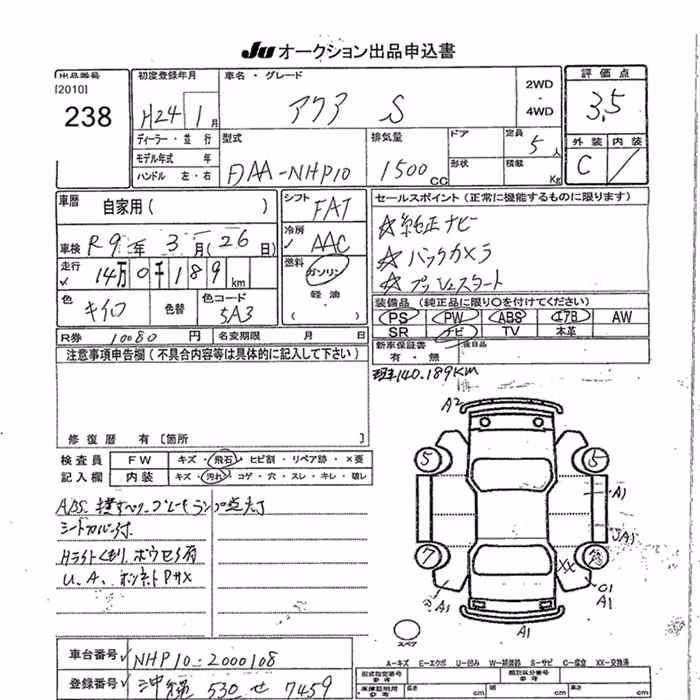 JU オークション出品申込書
出品番号
[2010]
238
初度登録年月
H24 1月
ディーラー・並行
モデル年式 年
ハンドル 左・右
車名・グレード
アクア S
2WD
・
4WD
型式
DAA-NHP10
排気量
1500cc
ドア
形状
定員
5人
積載
Kg
評価点
3.5
外装 内装
C
車歴 自家用( )
車検 R9年3月(26日)
走行 14万0千189km
色 キイロ
色替
色コード 5A3
シフト FAT
冷房 AAC
燃料 ガソリン
軽油
( )
R券 10080円
名変期限 月 日
セールスポイント(正常に機能するものに限ります)
☆純正ナビ
☆バックカメラ
☆プッシュスタート
装備品(純正品に限り○を付けてください)
PS PW ABS エアB AW
SR ナビ TV 本革
新車保証書
有・無
後日品
注意事項申告欄(不具合内容等は具体的に記入して下さい)
修復歴 有[箇所
現140.189KM
検査員
記入欄
FW キズ・飛石・ヒビ割・リペア跡・×要
内装 キズ・汚れ・コゲ・穴・スレ・キレ・破レ
ABS、横すべり、ブレーキランプ点灯
シートカバー付
Hライトくもり、ボウセイ有
U.A、ボンネットPHX
A2
5
5
A1
A1
7
XX
A1
G1
A1
A1
スペア
A-キズ E-エクボ U-凹み W-補修跡 S-サビ C-腐食 XX-交換済
車台番号 NHP10-2000108
登録番号 沖縄 530 せ 7459
型式指定番号
参考
類別区分番号
参考
cm cm cm